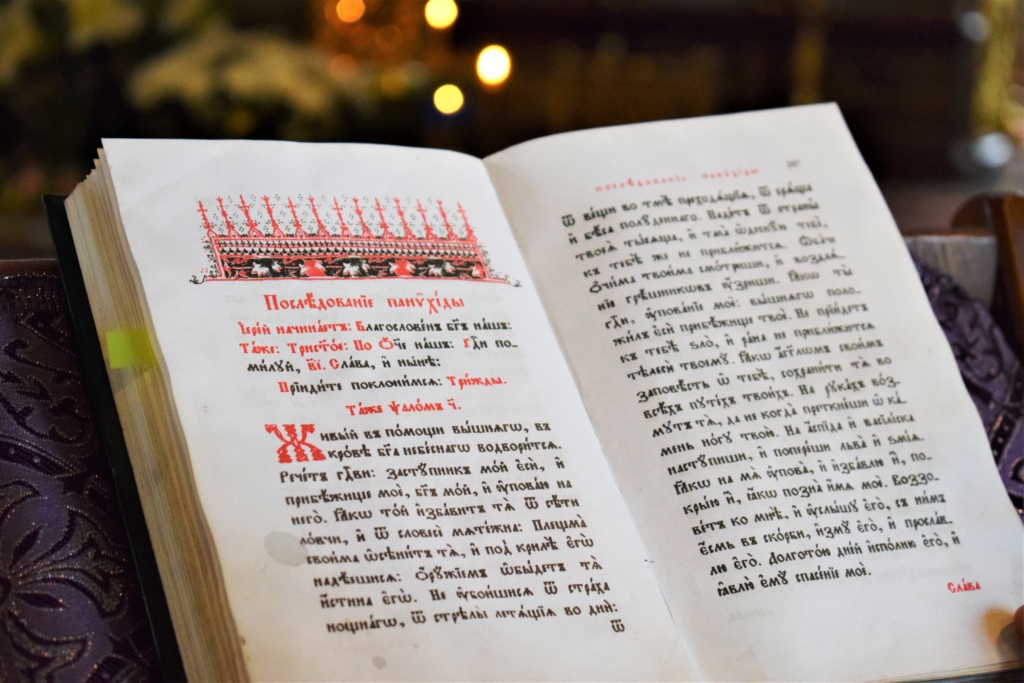 Послѣдованїе панѷхїды
Їерей начинаетъ: Благословенъ бг҃ъ нашъ:
Таже: Трист҃ое: По Ѻ҆́ч҃е нашъ: гд҇и по-
милуй, в҃і. Сла́ва, и҆ ны́нѣ:
Прїиди́те поклони́мсѧ: Три́жды.
Та́же ѱало́мъ ч҃.
Живы́й въ по́мощи вы́шнѧгѡ, въ
кро́вѣ бг҃а небе́снагѡ водвори́тсѧ.
Рече́тъ гд҇ви: засту́пникъ мо́й є҆сѝ, и҆
прибѣ́жище моѐ, бг҃ъ мо́й, и҆ ᲂу҆пова́ю на
него̀. Ꙗ҆́кѡ то́й и҆зба́витъ тѧ̀ ѿ сѣ́ти
ло́вчи, и҆ ѿ словесѐ мѧте́жна: Плещма̀
свои́ма ѡ҆сѣни́тъ тѧ̀, и҆ под̾ крилѣ̑ є҆гѡ̀
надѣ́ешисѧ: Ѻ҆рꙋ́жїемъ ѡ҆бы́детъ тѧ̀
и҆́стина є҆гѡ̀. Не ᲂу҆бои́шисѧ ѿ стра́ха
нощна́гѡ, ѿ стрѣлы̀ летѧ́щїѧ во днѝ:
ѿ
послѣдованїе панѷхїды
ѿ ве́щи во тмѣ̀ преходѧ́щїѧ, ѿ срѧ́ща
и҆ бѣ́са полꙋ́деннагѡ. Паде́тъ ѿ страны̀
твоеѧ̀ ты́сѧща, и҆ тма̀ ѡ҆деснꙋ́ю тебє̀,
къ тебѣ́ же не прибли́житсѧ. Ѻ҆ба́че
ѻ҆чи́ма твои́ма смо́триши, и҆ воздаѧ́-
нїе грѣ́шникѡвъ ᲂу҆́зриши. Ꙗ҆́кѡ ты̀
гд҇и, ᲂу҆пова́нїе моѐ: вы́шнѧго поло-
жи́лъ є҆сѝ прибѣ́жище твоѐ. Не прїи́детъ
къ тебѣ̀ ѕло̀, и҆ ра́на не прибли́житсѧ
тѣлесѝ твоемꙋ̀. Ꙗ҆́кѡ а҆́гг҃лѡмъ свои̑мъ
заповѣ́сть ѡ҆ тебѣ̀, сохрани́ти тѧ̀ во
всѣ́хъ пꙋте́хъ твои́хъ. На рꙋка́хъ во́з-
мꙋтъ тѧ̀, да не когда̀ преткне́ши ѡ҆ ка́-
мень но́гꙋ твою̀. На а҆́спїда и҆ васїлі́ска
настꙋ́пиши, и҆ попере́ши льва̀ и҆ ѕмі́ѧ.
Ꙗ҆́кѡ на мѧ̀ ᲂу҆пова̀, и҆ и҆зба́влю и҆̀, по-
кры́ю и҆̀, ꙗ҆́кѡ позна̀ и҆́мѧ моѐ. Воззо-
ве́тъ ко мнѣ̀, и҆ ᲂу҆слы́шꙋ є҆го̀, съ ни́мъ
є҆́смь въ ско́рби, и҆змꙋ̀ є҆го̀, и҆ просла́в-
лю є҆го̀. Долгото́ю дні́й и҆спо́лню є҆го̀, и҆
ꙗ҆влю̀ є҆мꙋ̀ спасе́нїе моѐ.
Сла́ва